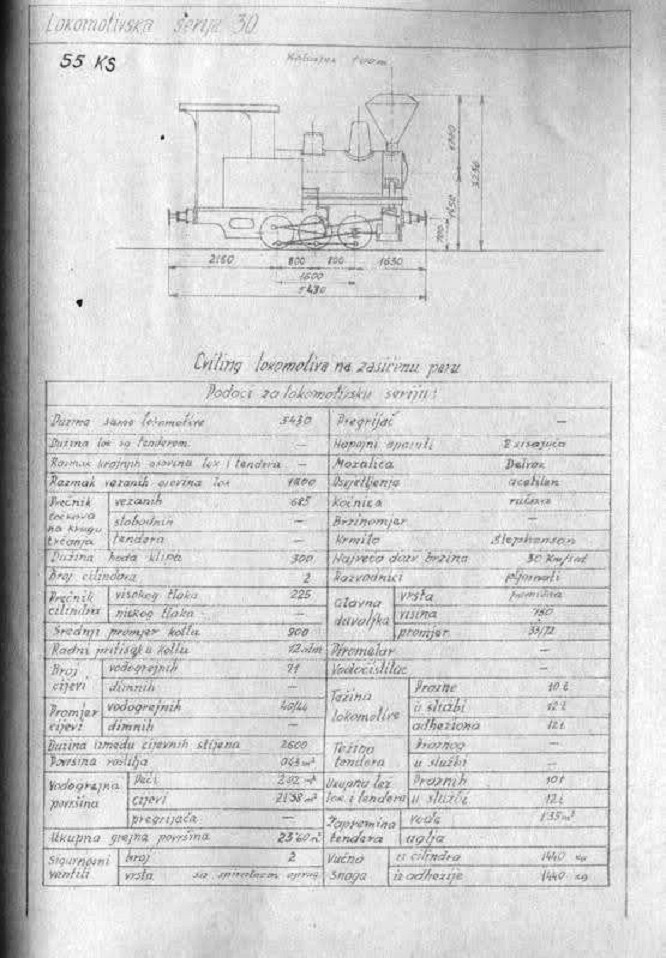 Lokomotivska serija 30
55 KS
700
1450
3250
2180 800 800 1650
1600
5430
Cviling lokomotiva na zasićenu paru
Podaci za lokomotivsku seriju:
Dužina same lokomotive 5430
Dužina lok sa tenderom —
Razmak krajnjih osovina lok i tendera —
Razmak vezanih osovina lok 1600
Prečnik točkova na krugu trčanja
vezanih 685
slobodnih —
tendera —
Dužina hoda klipa 300
Broj cilindara 2
Prečnik cilindra
visokog tlaka 225
niskog tlaka —
Srednji promjer kotla 900
Radni pritisak u kotlu 12 atm
Broj cijevi
vodogrejnih 71
dimnih —
Promjer cijevi
vodogrejnih 40/44
dimnih —
Dužina između cijevnih stijena 2600
Površina roštilja
Vodogrejna površina
peći
cijevi
pregrijača —
Ukupna grejna površina
Sigurnosni ventili
broj 2
vrsta sa spiralnom oprug
Pregrijač —
Napojni aparati
Mazalica Detroa
Osvjetljenje acetilen
Kočnica ručna
Brzinomjer —
Krmilo Stephenson
Najveća dozv brzina 30 Km/sat
Razvodnici pljosnati
Glavna davaljka
vrsta
visina 750
promjer
Pirometar —
Vodočistilac —
Težina lokomotive
Prazne 10 t
u službi 12 t
adheziona 12 t
Težina tendera
Praznog —
u službi —
Ukupna tež lok i tendera
Praznih 10 t
u službi 12 t
Zapremina tendera
vode 1.35 m³
uglja
Vučna Snaga
iz cilindra 1440 kg
iz adhezije 1440 kg